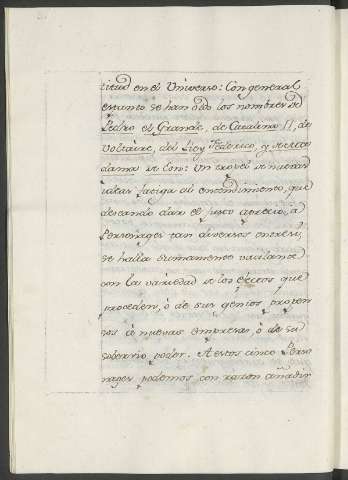 titud en el Universo: Con general
espanto se han oido los nombres de
Pedro el Grande, de Catalina II, de
Voltaire, del Rey Federico, y
dama de Eon: Un tropel de nuevas
ideas fatiga al entendimiento, que
deseando dar el justo aprecio, à
Personages tan diversos entre si,
se halla sumamente vacilante
con la variedad de los efectos que
proceden, ò de sus genios propen
sos à nuevas empresas, ò de su
sobervio poder. A estos cinco Perso
nages podemos con razon añadir